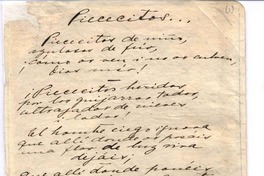 Piececitos...
(1)
Piececitos de niño,
azulosos de frío,
¡cómo os ven i no os cubren,
Dios mío!
¡Piececitos heridos
por los guijarros todos,
ultrajados de nieves
i lodos!
El hombre ciego ignora
que allí donde os posais
una flor de luz viva
dejais;
que allí donde poneis